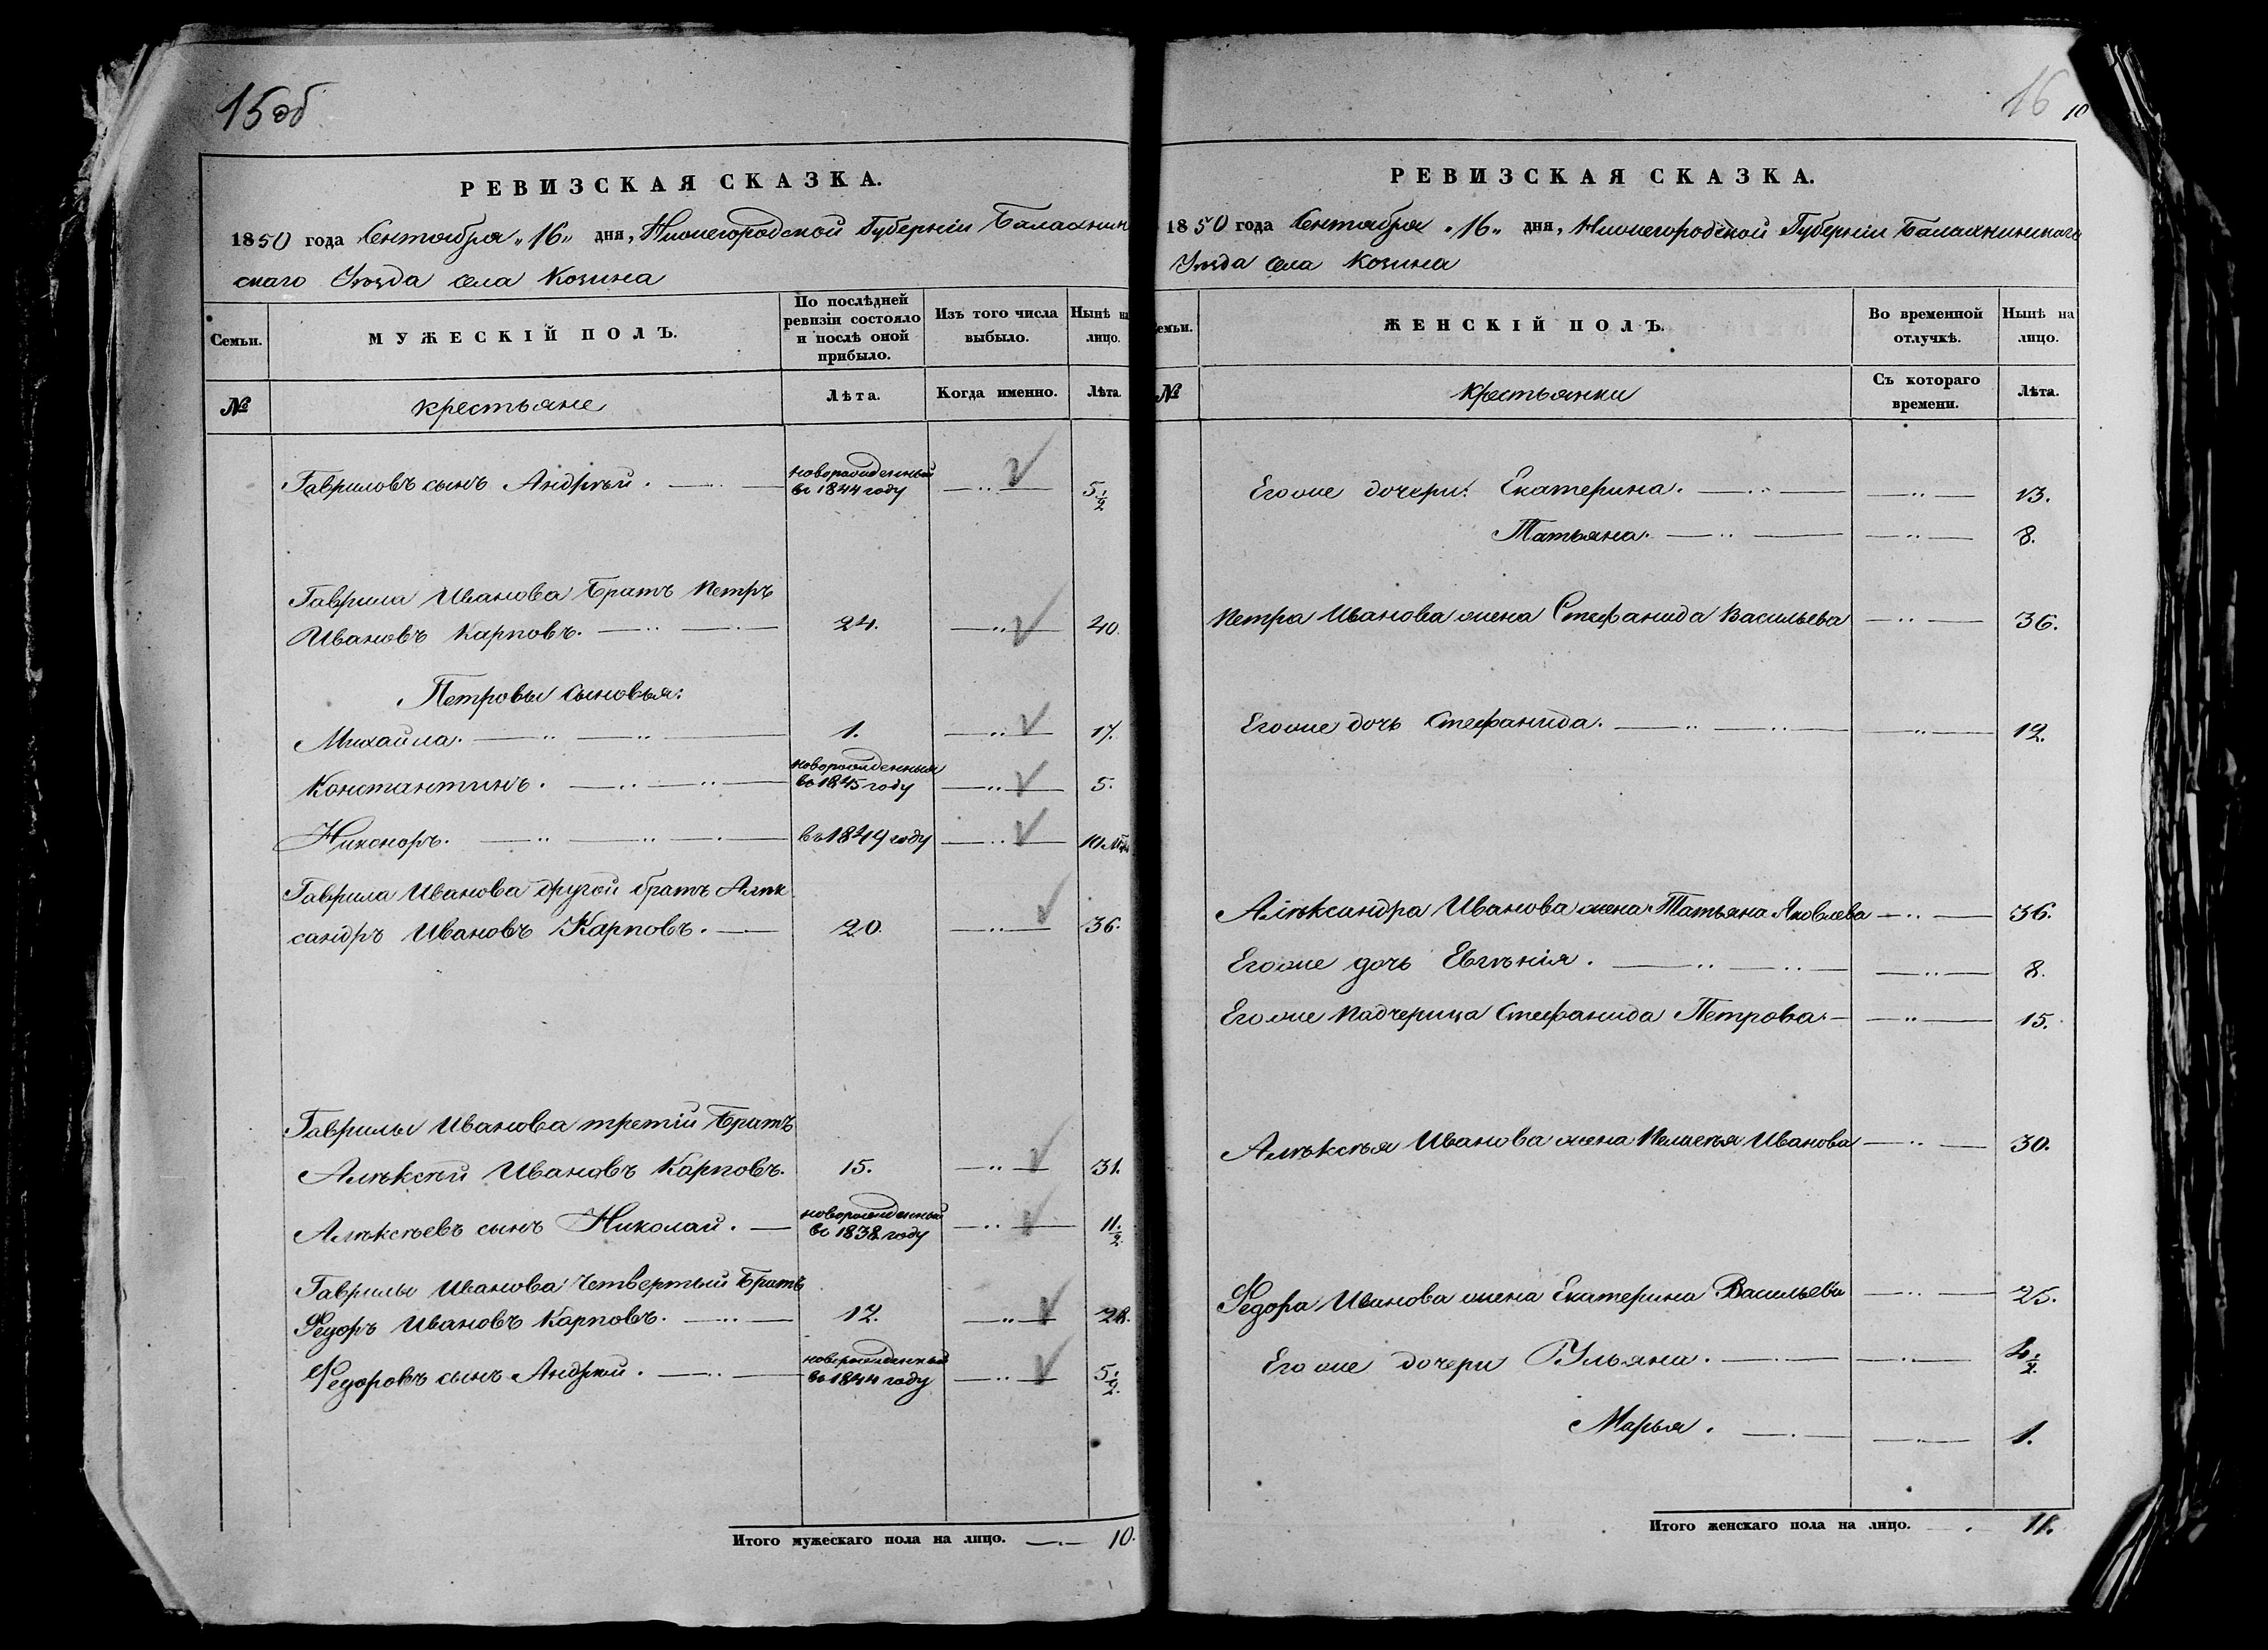 15об
РЕВИЗСКАЯ СКАЗКА.
1850 года Сентября „16„ дня, Нижегородской Губерніи Балахнин
скаго Уѣзда села Козина
Семьи.
МУЖЕСКІЙ ПОЛЪ.
По послѣдней ревизіи состояло и послѣ оной прибыло.
Изъ того числа выбыло.
Нынѣ на лицо.
№
крестьяне
Лѣта.
Когда именно.
Лѣта
Гавриловъ сынъ Андрѣй. новорожденный въ 1844 году 5 1/2
Гаврила Иванова братъ Петръ
Ивановъ Карповъ. 24. 40.
Петровы сыновья:
Михайла. 1. 17.
Константинъ. новорожденный въ 1845 году 5.
Никоноръ. въ 1849 году 10
Гаврила Иванова другой братъ Алѣк
сандръ Ивановъ Карповъ. 20. 36.
Гаврилы Иванова третій братъ
Алѣксѣй Ивановъ Карповъ. 15. 31.
Алѣксѣевъ сынъ Николай. новорожденный въ 1838 году 11 1/2
Гаврилы Иванова четвертый братъ
Ѳедоръ Ивановъ Карповъ. 12. 28.
Ѳедоровъ сынъ Андрѣй. новорожденный въ 1844 году 5 1/2.
Итого мужескаго пола на лицо. 10.
16
10
РЕВИЗСКАЯ СКАЗКА.
1850 года Сентября „16„ дня, Нижегородской Губерніи Балахнинскаго
Уѣзда села Козина
емьи.
ЖЕНСКІЙ ПОЛЪ.
Во временной отлучкѣ.
Нынѣ на лицо.
№
крестьянки
Съ котораго времени.
Лѣта.
Егоже дочери: Екатерина. 13.
Татьяна. 8.
Петра Иванова жена Стефанида Васильева 36.
Егоже дочь Стефанида. 12.
Алѣксандра Иванова жена Татьяна Яковлева 36.
Егоже дочь Евгѣнія. 8.
Егоже падчерица Стефанида Петрова. 15.
Алѣксѣя Иванова жена Пелагѣя Иванова 30.
Ѳедора Иванова жена Екатерина Васильева 25.
Егоже дочери Ульяна.
Марья. 1.
Итого женскаго пола на лицо. 11.